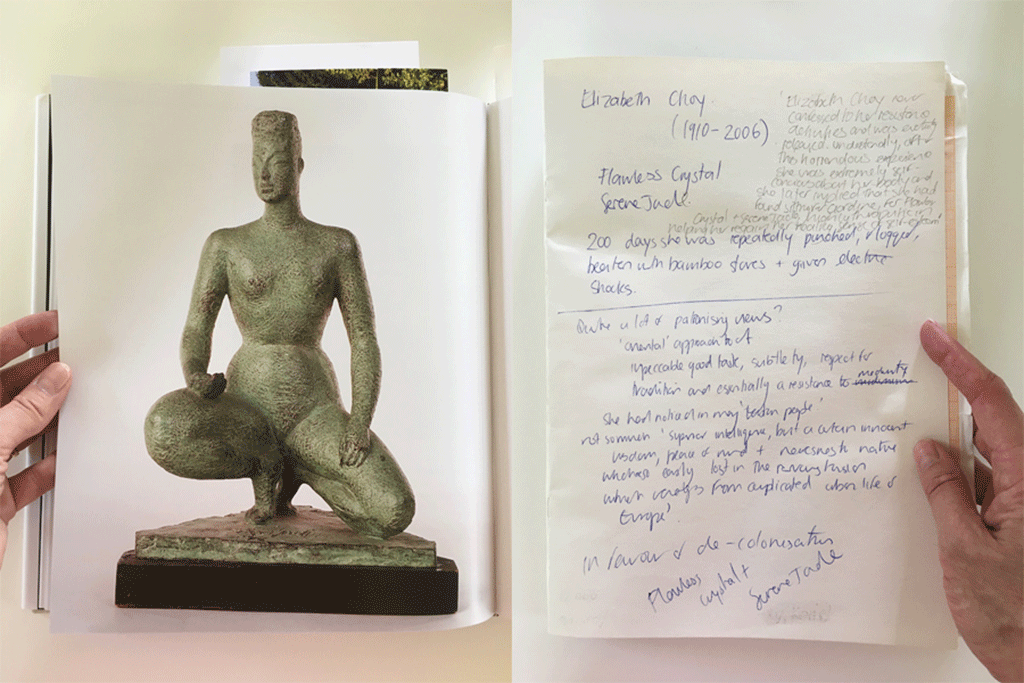 Elizabeth Choy.
(1910-2006)
'Elizabeth Choy never
confessed to her resistance
activities and was eventually
released unofficially, after
this horrendous experience
she was extremely self-
conscious about her body, and
she later implied that she had
found sitting for Gardiner, for Flawless
Crystal + Serene Jade, highly therapeutic in
helping her regain her sense of self-esteem'
Flawless Crystal
Serene Jade.
200 days she was repeatedly punched, flogged,
beaten with bamboo staves + given electric
shocks.
Quite a lot of patronising views?
'oriental' approach to A
impeccable good taste, subtlety, respect for
tradition and essentially a resistance to
She had noticed in many
not so much 'superior intelligence, but a certain innocent
wisdom, peace of mind + native
wholeness easily lost in the
which from complicated urban life of
Europe'.
In favour of de-colonisation
Flawless
crystal +
Serene Jade